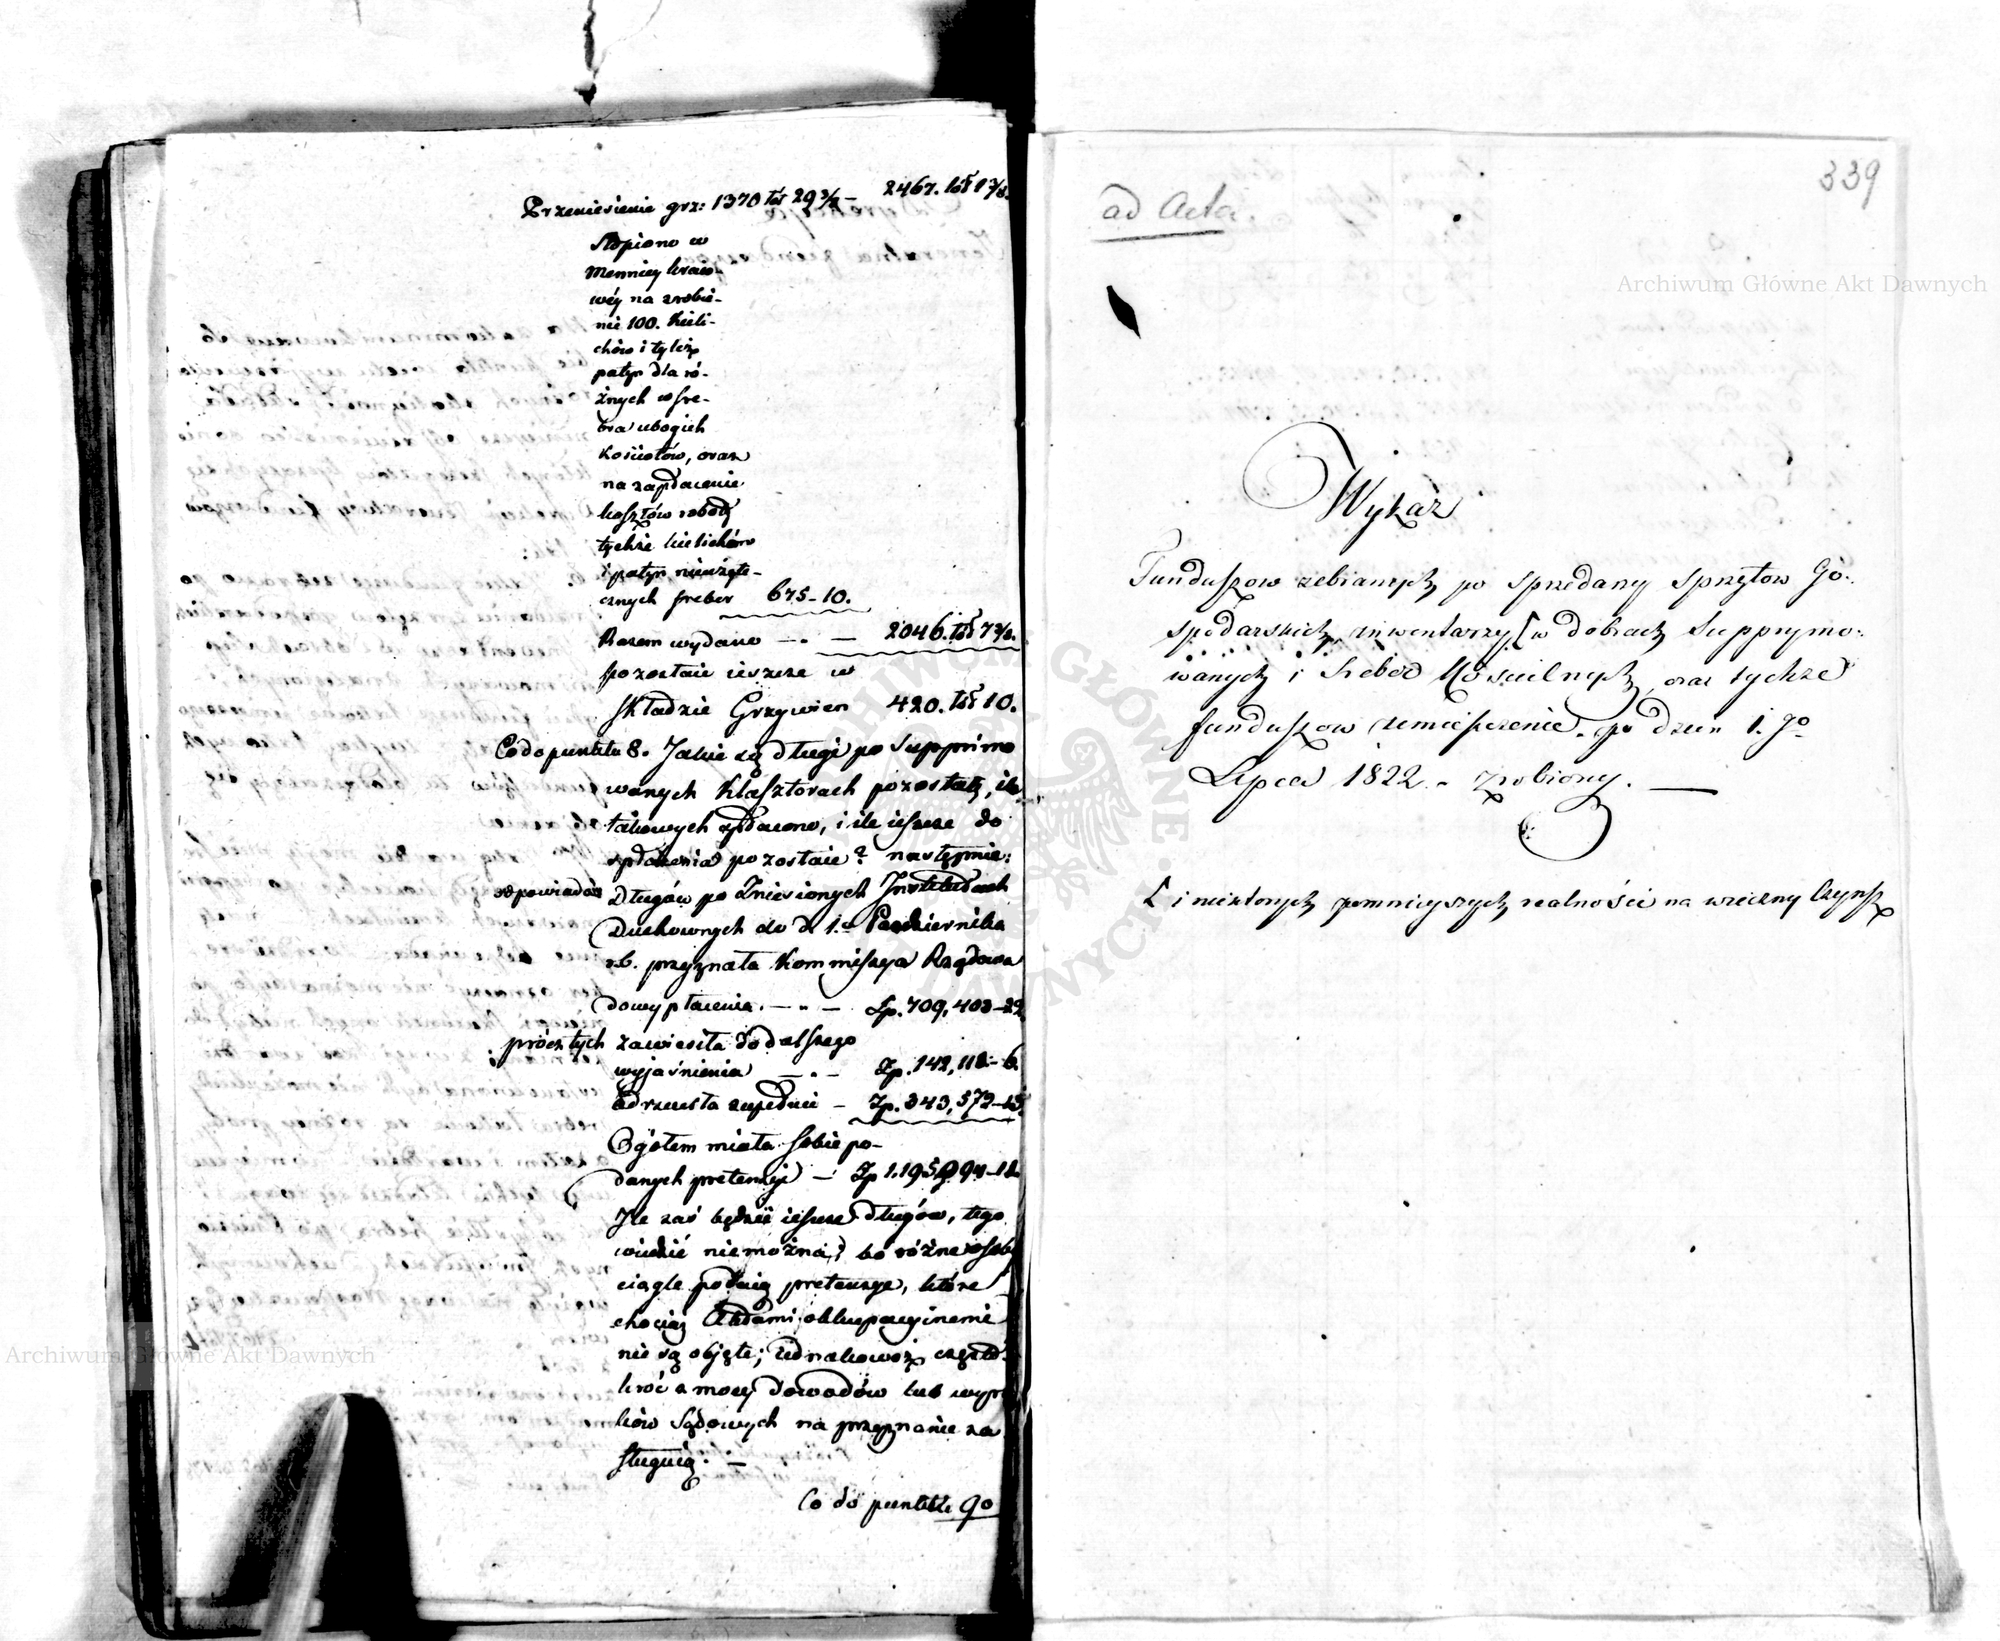 Przeniesienie grz: 1370 łót 29 3/8 — 2467. łót 1 7/8.
Stopiono w
Mennicy kraio-
wéy na zrobie-
nie 100. Kieli-
chów i tyleż
patyn dla ró-
żnych w sre-
bra ubogich
Kościołów, oraz
na zapłacenie
kosztów roboty
tychże kielichów
i patyn nieużyte-
cznych sreber 675-10.
Razem wydano — . — 2046. łót 7 3/8.
pozostaie ieszcze w
Składzie Grzywien 420. łót 10.
Co do punktu 8. Jakie są długi po supprimo
wanych Klasztorach pozostałe, ile
takowych opłacono, i ile ieszcze do
opłacenia pozostaie? następnie:
odpowiada Długów po Zniesionych Instytutach
Duchownych do d. 1.go Października
r.b. przyznała Kommissya Rządowa
do wypłacenia. — . — Zp. 709,403-22
prócz tych zawiesiła do dalszego
wyjaśnienia — . — Zp. 142,118-6.
Odrzuciła zupełnie — Zp. 343,572-13
Ogółem miała sobie po-
danych pretensyi — Zp 1.195,094-11
Ile zaś będzie ieszcze długów, tego
wiedzić niemożna, bo różne osoby
ciągle podaią pretensye, które
chociaż Aktami okkupacyinemi
nie są objęte; iednakowoż często-
kroć z mocy dowodów lub wyro
ków Sądowych na przyznanie za
sługuią. —
Co do punktu 9o
339
ad Acta.
Wykaz
Funduszow zebranych po sprzedaży sprzętow Go-
spodarskich, inwentarzy [w dobrach Supprymo-
wanych i Sreber Kościelnych, oraz tychże
funduszow umieszczenie. po dzień 1.go
Lipca 1822. zrobiony. —
[ i niektorych pomnieyszych realności na wieczny Czynsz
Archiwum Główne Akt Dawnych
Archiwum Główne Akt Dawnych
ARCHIWUM GŁÓWNE AKT DAWNYCH